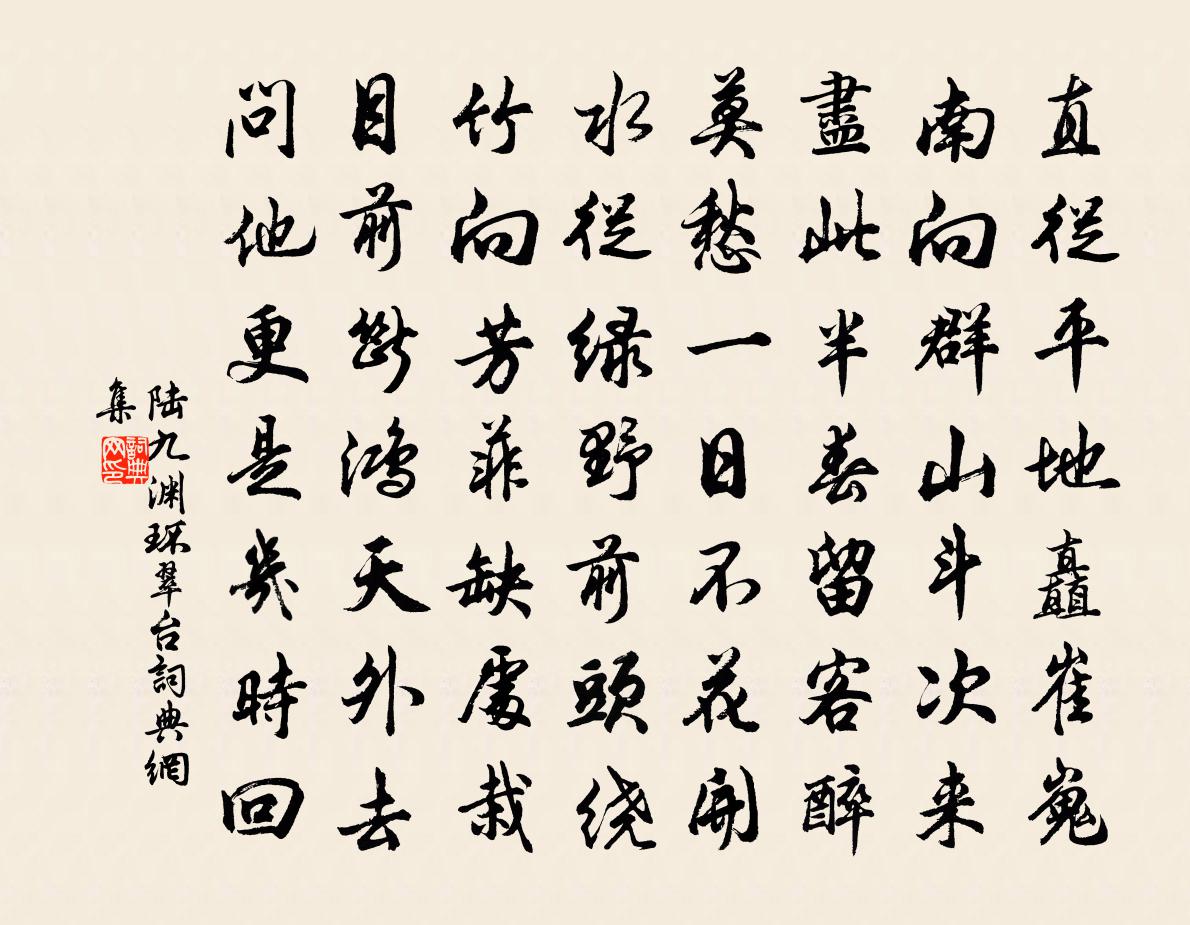 直從平地矗崔嵬
南向群山斗次来
盡此半春留客醉
莫愁一日不花開
水從绿野前頭绕
竹向芳菲缺處栽
目前斷鴻天外去
問他更是幾時回
陆九渊环翠台詞典網
集
詞典网印